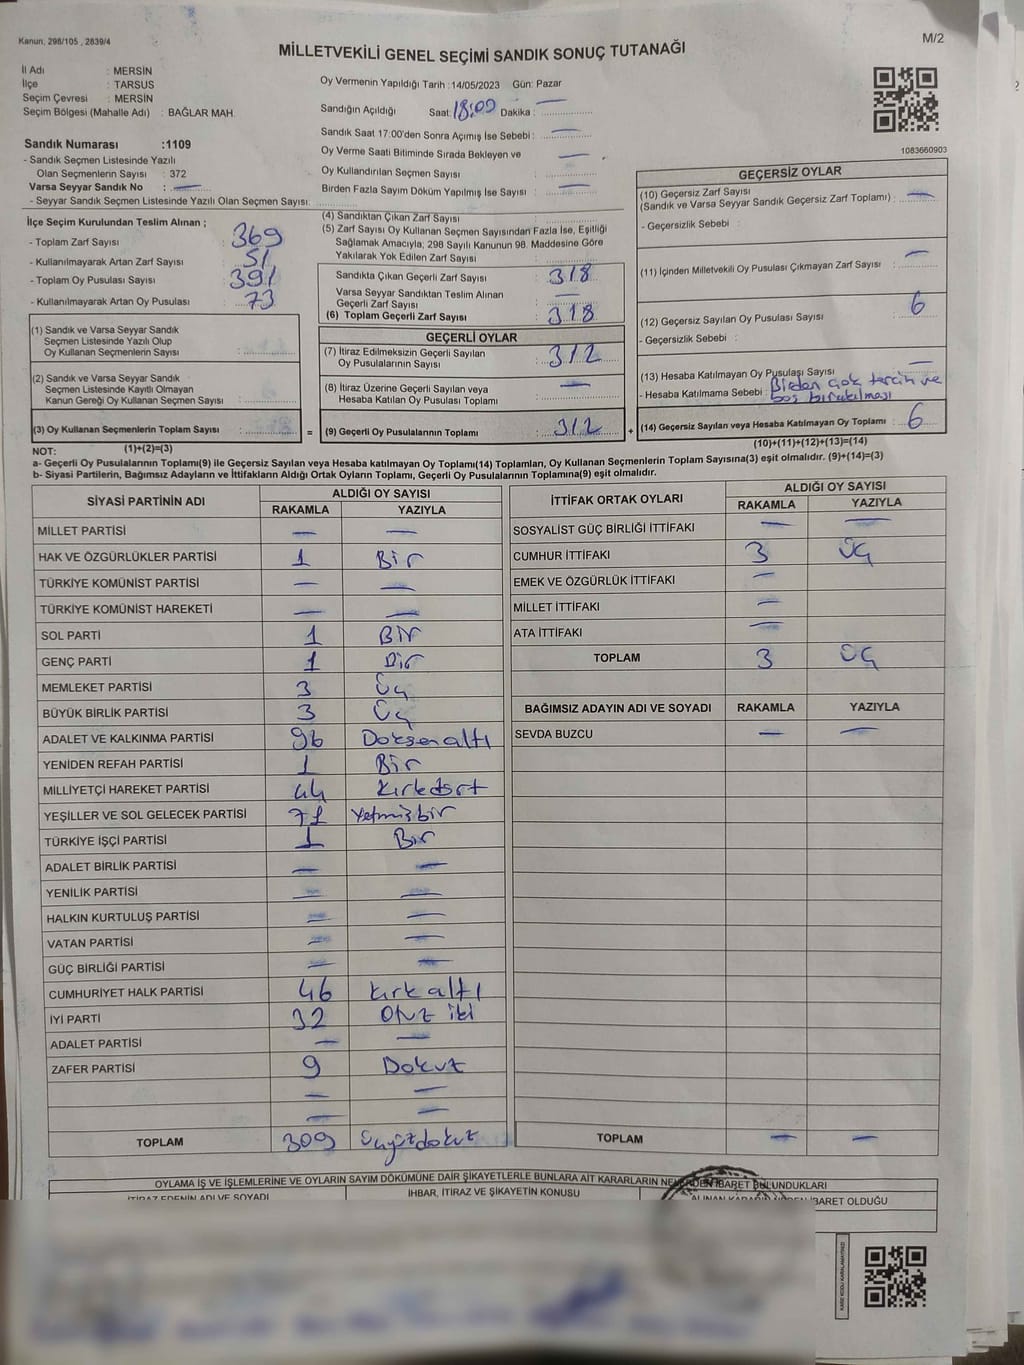 Kanun, 298/105 , 2839/4
M/2
MİLLETVEKİLİ GENEL SEÇİMİ SANDIK SONUÇ TUTANAĞI
İl Adı : MERSİN
İlçe : TARSUS
Seçim Çevresi : MERSİN
Seçim Bölgesi (Mahalle Adı) : BAĞLAR MAH.
Oy Vermenin Yapıldığı Tarih : 14/05/2023 Gün: Pazar
Sandığın Açıldığı Saat: 18:00 Dakika : —
Sandık Saat 17:00'den Sonra Açımış İse Sebebi : —
Oy Verme Saati Bitiminde Sırada Bekleyen ve
Oy Kullandırılan Seçmen Sayısı : —
Birden Fazla Sayım Döküm Yapılmış İse Sayısı : —
1083660903
Sandık Numarası :1109
- Sandık Seçmen Listesinde Yazılı
Olan Seçmenlerin Sayısı : 372
Varsa Seyyar Sandık No : —
- Seyyar Sandık Seçmen Listesinde Yazılı Olan Seçmen Sayısı:
İlçe Seçim Kurulundan Teslim Alınan ;
- Toplam Zarf Sayısı : 369
- Kullanılmayarak Artan Zarf Sayısı : 51
- Toplam Oy Pusulası Sayısı : 391
- Kullanılmayarak Artan Oy Pusulası : 73
(1) Sandık ve Varsa Seyyar Sandık
Seçmen Listesinde Yazılı Olup
Oy Kullanan Seçmenlerin Sayısı :
(2) Sandık ve Varsa Seyyar Sandık
Seçmen Listesinde Kayıtlı Olmayan
Kanun Gereği Oy Kullanan Seçmen Sayısı :
(3) Oy Kullanan Seçmenlerin Toplam Sayısı :
(1)+(2)=(3)
(4) Sandıktan Çıkan Zarf Sayısı :
(5) Zarf Sayısı Oy Kullanan Seçmen Sayısından Fazla İse, Eşitliği
Sağlamak Amacıyla; 298 Sayılı Kanunun 98. Maddesine Göre
Yakılarak Yok Edilen Zarf Sayısı :
Sandıkta Çıkan Geçerli Zarf Sayısı : 318
Varsa Seyyar Sandıktan Teslim Alınan
Geçerli Zarf Sayısı : —
(6) Toplam Geçerli Zarf Sayısı : 318
GEÇERLİ OYLAR
(7) İtiraz Edilmeksizin Geçerli Sayılan
Oy Pusulalarının Sayısı : 312
(8) İtiraz Üzerine Geçerli Sayılan veya
Hesaba Katılan Oy Pusulası Toplamı : —
= (9) Geçerli Oy Pusulalarının Toplamı : 312 +
GEÇERSİZ OYLAR
(10) Geçersiz Zarf Sayısı
(Sandık ve Varsa Seyyar Sandık Geçersiz Zarf Toplamı) : —
- Geçersizlik Sebebi :
(11) İçinden Milletvekili Oy Pusulası Çıkmayan Zarf Sayısı : —
(12) Geçersiz Sayılan Oy Pusulası Sayısı : 6
- Geçersizlik Sebebi :
(13) Hesaba Katılmayan Oy Pusulası Sayısı : —
- Hesaba Katılmama Sebebi : Birden çok tercih ve
boş bırakılması
(14) Geçersiz Sayılan veya Hesaba Katılmayan Oy Toplamı : 6
(10)+(11)+(12)+(13)=(14)
NOT:
a- Geçerli Oy Pusulalarının Toplamı(9) ile Geçersiz Sayılan veya Hesaba katılmayan Oy Toplamı(14) Toplamları, Oy Kullanan Seçmenlerin Toplam Sayısına(3) eşit olmalıdır. (9)+(14)=(3)
b- Siyasi Partilerin, Bağımsız Adayların ve İttifakların Aldığı Ortak Oyların Toplamı, Geçerli Oy Pusulalarının Toplamına(9) eşit olmalıdır.
SİYASİ PARTİNİN ADI ALDIĞI OY SAYISI
RAKAMLA YAZIYLA
MİLLET PARTİSİ — —
HAK VE ÖZGÜRLÜKLER PARTİSİ 1 Bir
TÜRKİYE KOMÜNİST PARTİSİ — —
TÜRKİYE KOMÜNİST HAREKETİ — —
SOL PARTİ 1 Bir
GENÇ PARTİ 1 Bir
MEMLEKET PARTİSİ 3 Üç
BÜYÜK BİRLİK PARTİSİ 3 Üç
ADALET VE KALKINMA PARTİSİ 96 Doksanaltı
YENİDEN REFAH PARTİSİ 1 Bir
MİLLİYETÇİ HAREKET PARTİSİ 44 Kırkdört
YEŞİLLER VE SOL GELECEK PARTİSİ 71 Yetmişbir
TÜRKİYE İŞÇİ PARTİSİ 1 Bir
ADALET BİRLİK PARTİSİ — —
YENİLİK PARTİSİ — —
HALKIN KURTULUŞ PARTİSİ — —
VATAN PARTİSİ — —
GÜÇ BİRLİĞİ PARTİSİ — —
CUMHURİYET HALK PARTİSİ 46 kırk altı
İYİ PARTİ 32 Otuz iki
ADALET PARTİSİ — —
ZAFER PARTİSİ 9 Dokuz
— —
— —
TOPLAM 309 Üçyüzdokuz
İTTİFAK ORTAK OYLARI ALDIĞI OY SAYISI
RAKAMLA YAZIYLA
SOSYALİST GÜÇ BİRLİĞİ İTTİFAKI — —
CUMHUR İTTİFAKI 3 Üç
EMEK VE ÖZGÜRLÜK İTTİFAKI —
MİLLET İTTİFAKI —
ATA İTTİFAKI —
TOPLAM 3 Üç
BAĞIMSIZ ADAYIN ADI VE SOYADI RAKAMLA YAZIYLA
SEVDA BUZCU — —
TOPLAM — —
OYLAMA İŞ VE İŞLEMLERİNE VE OYLARIN SAYIM DÖKÜMÜNE DAİR ŞİKAYETLERLE BUNLARA AİT KARARLARIN NEREDEN İBARET BULUNDUKLARI
İTİRAZ EDENİN ADI VE SOYADI
İHBAR, İTİRAZ VE ŞİKAYETİN KONUSU
ALINAN KARARIN İBARET OLDUĞU